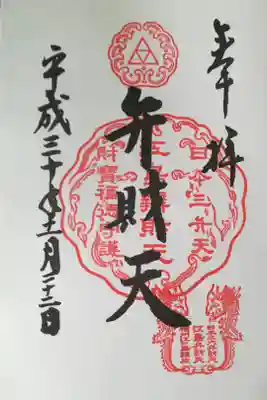 奉拝
日本三弁天
弁財天
財寶福徳守護
平成三十年十一月二十二日